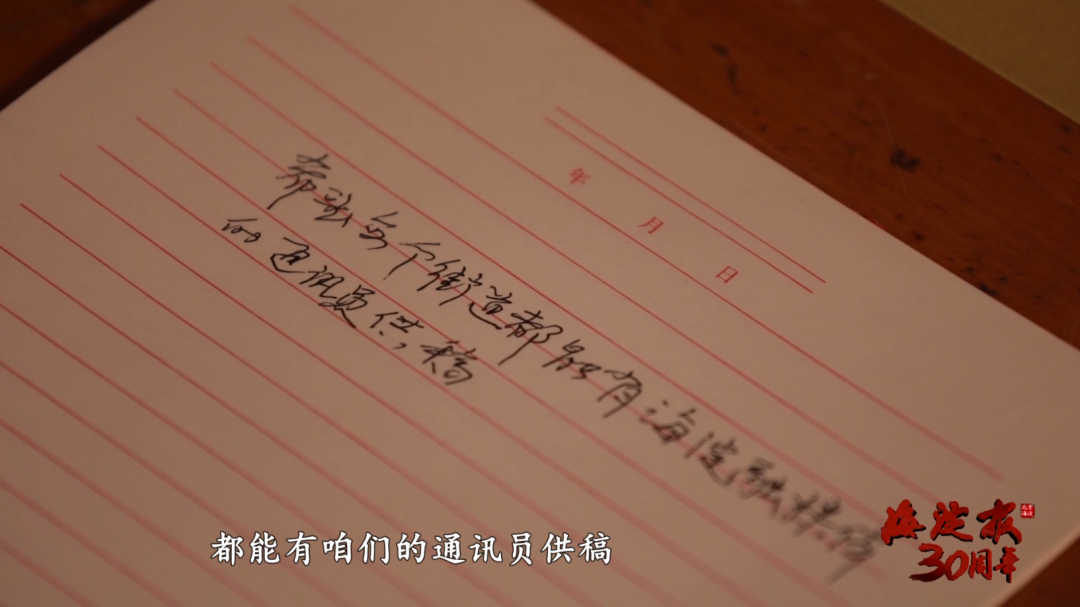 年 月 日
希望每个街道都能有海淀融媒体
的通讯员供稿
都能有咱们的通讯员供稿
海淀报
北京
海淀
30周年